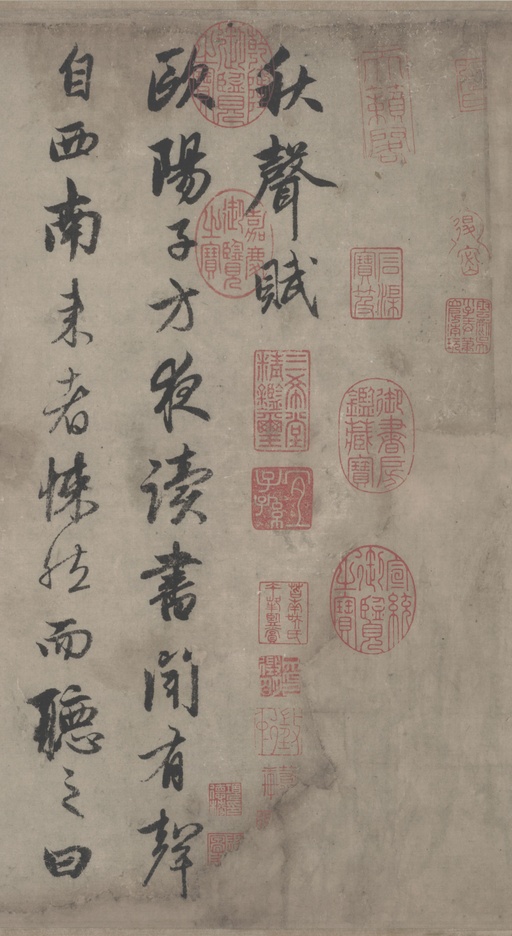 秋聲賦
歐陽子方夜讀書聞有聲
自西南来者悚然而聽之曰
嘉慶御覽之寶
三希堂精鑑璽
宜子孫
御書房鑑藏寶
宣統御覽之寶